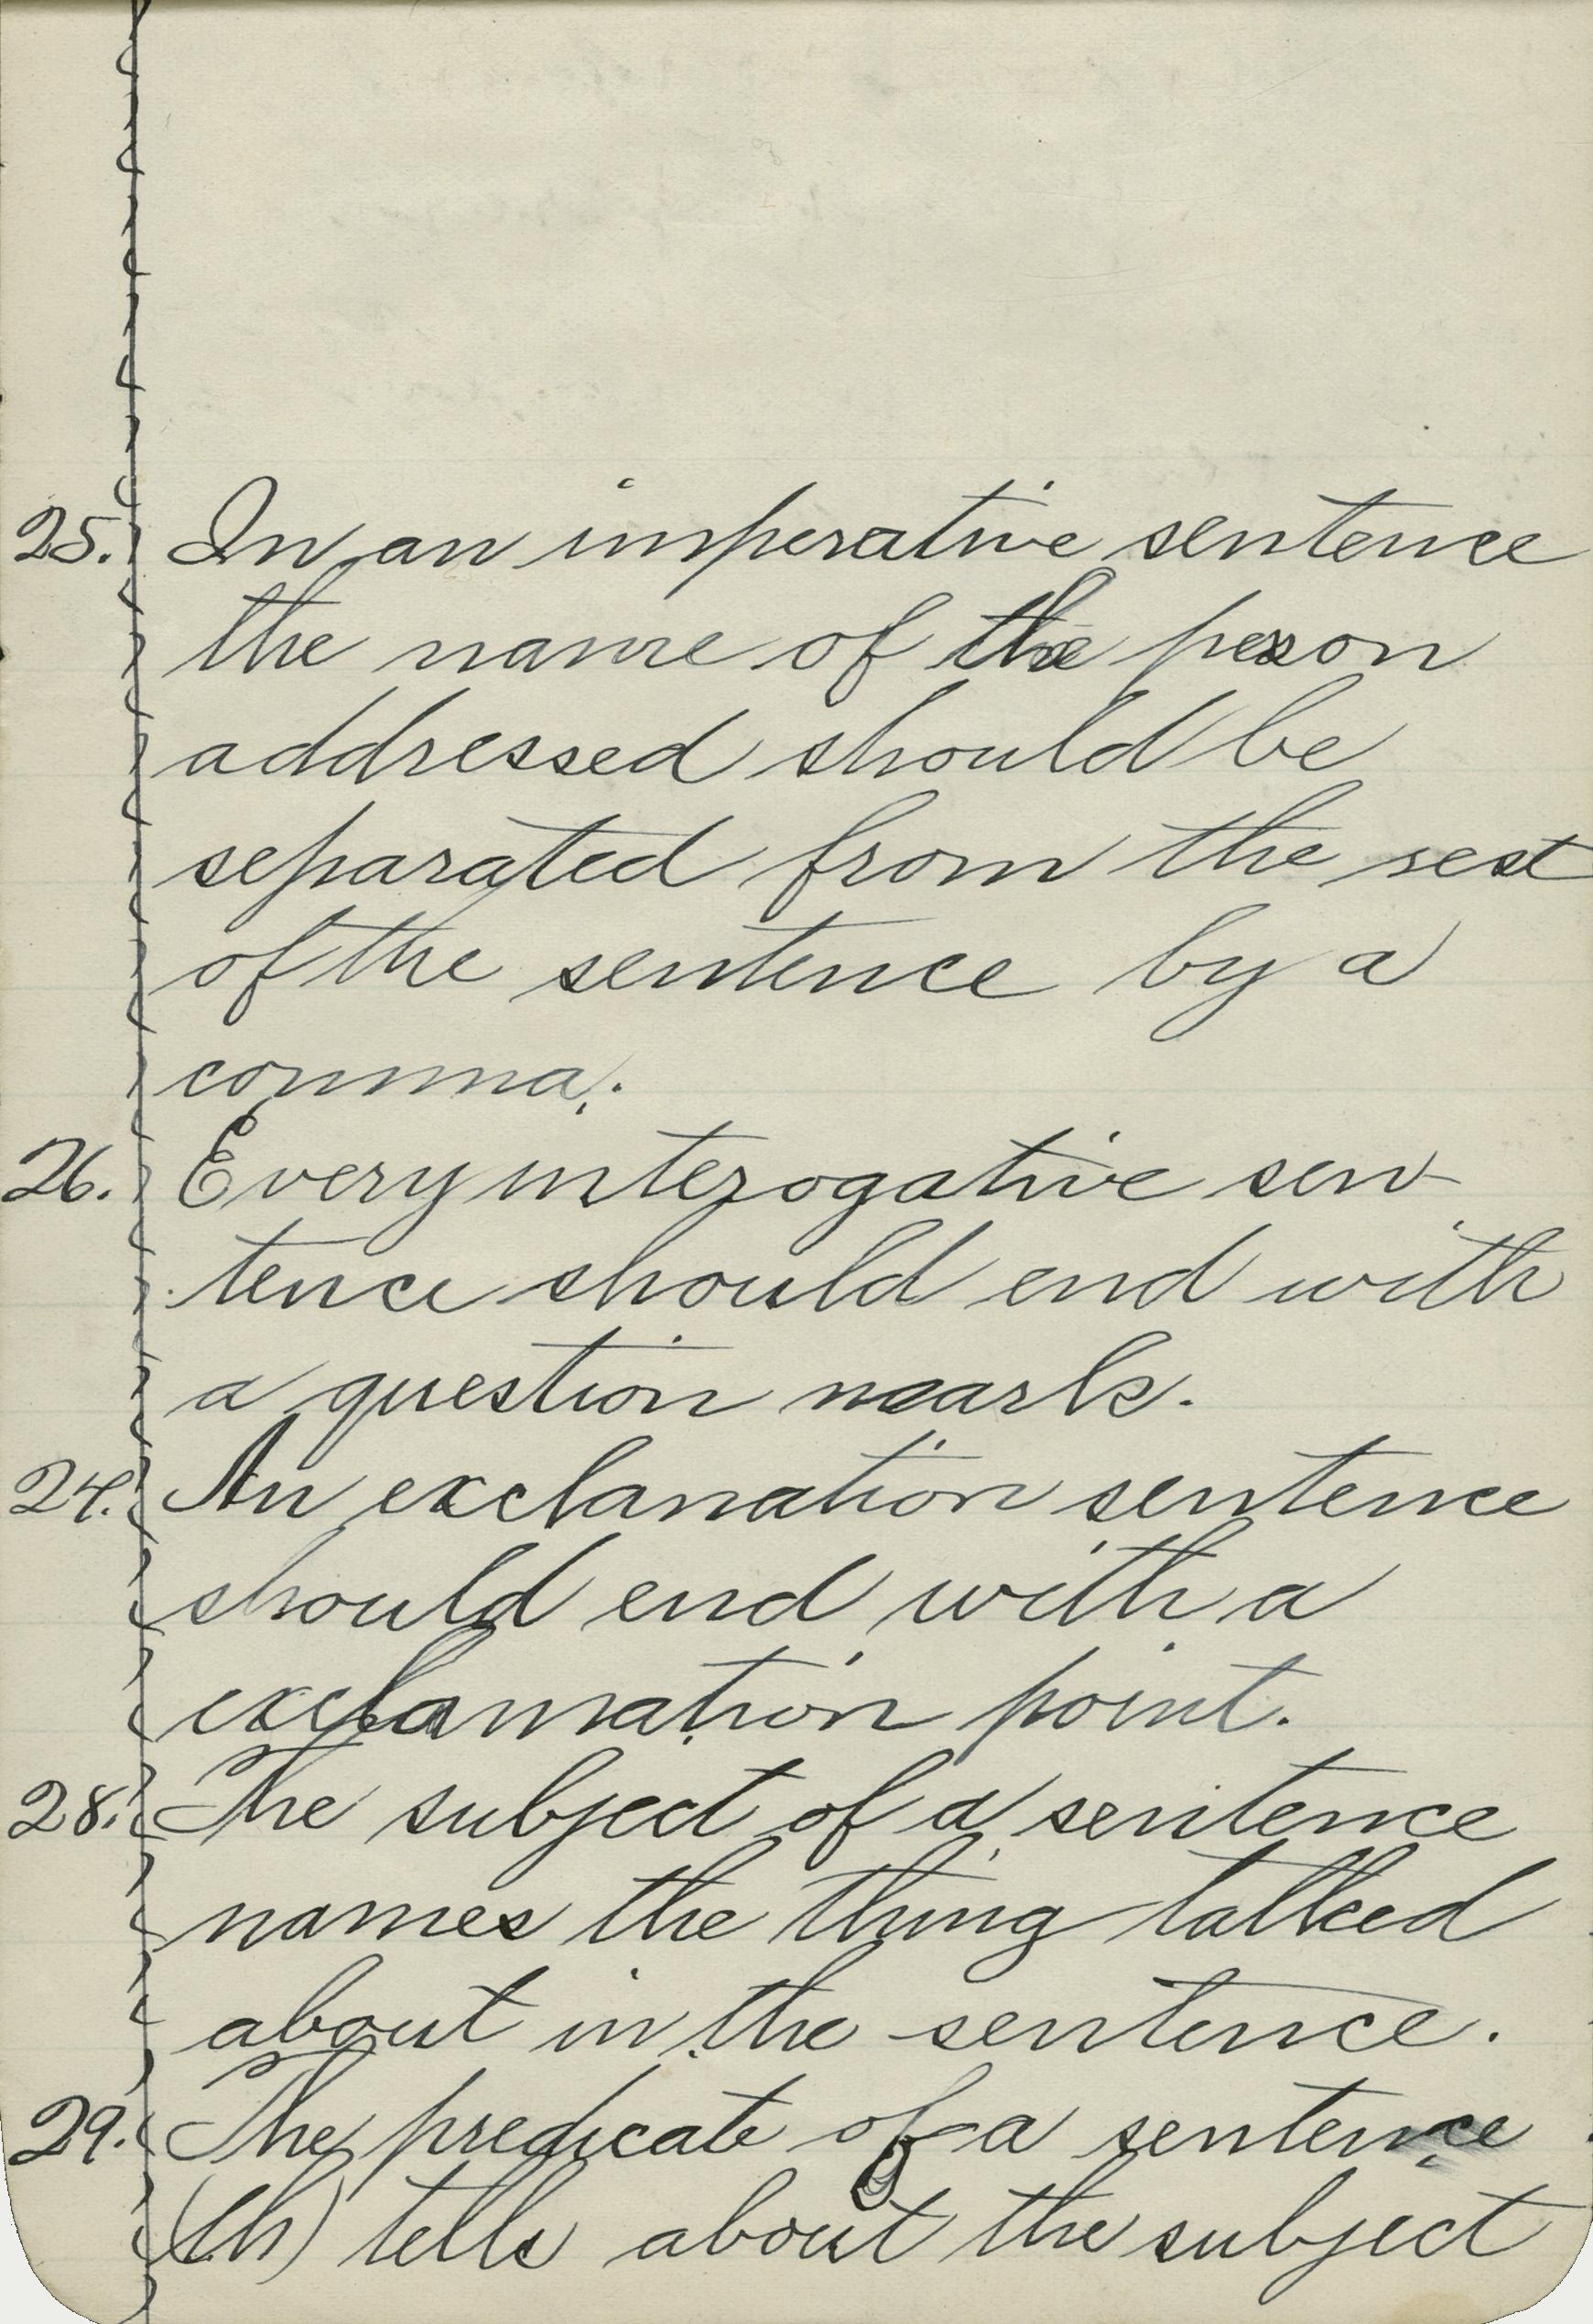 25. In an imperative sentence
the name of the person
addressed should be
separated from the rest
of the sentence by a
comma.
26. Every interogative sen-
tence should end with
a question mark.
24. An exclanation sentence
should end with a
exclamation point.
28. The subject of a sentence
names the thing talked
about in the sentence.
29. The predicate of a sentence
(th) tells about the subject